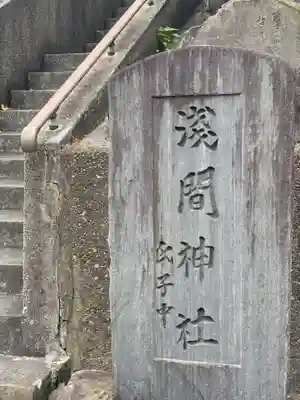 淺間神社
氏子中